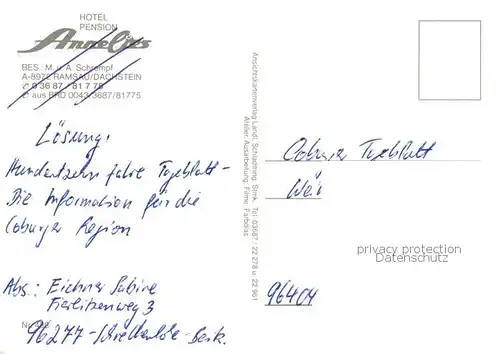 HOTEL
PENSION
Annelies
BES.: M. u. A. Schrempf
A-8972 RAMSAU/DACHSTEIN
✆ 0 36 87 / 81 7 75
✆ aus BRD 0043/3687/81775
Lösung:
Hundertzehn Jahre Tageblatt -
Die Information für die
Coburger Region
Abs.: Eichner Sabine
Fierlitzenweg 3
96277
Ansichtskartenverlag Landl, Schladming, Stmk., Tel. 03687 / 22 278 u. 22 961
Atelier, Ausarbeitung, Filme, Farbdias
Coburger Tageblatt
96404
privacy protection
Datenschutz